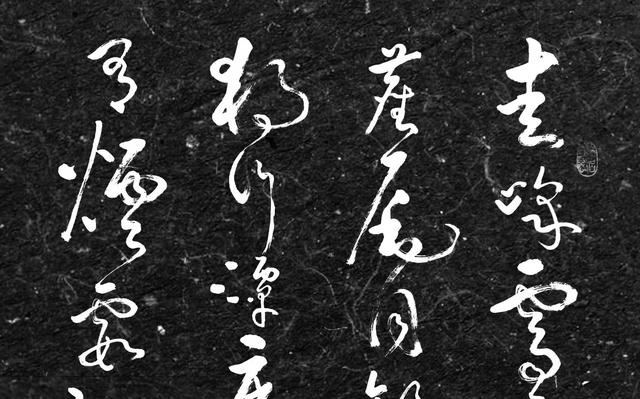 圭峰霽
麈尾同
獨行潭底
有煙霞